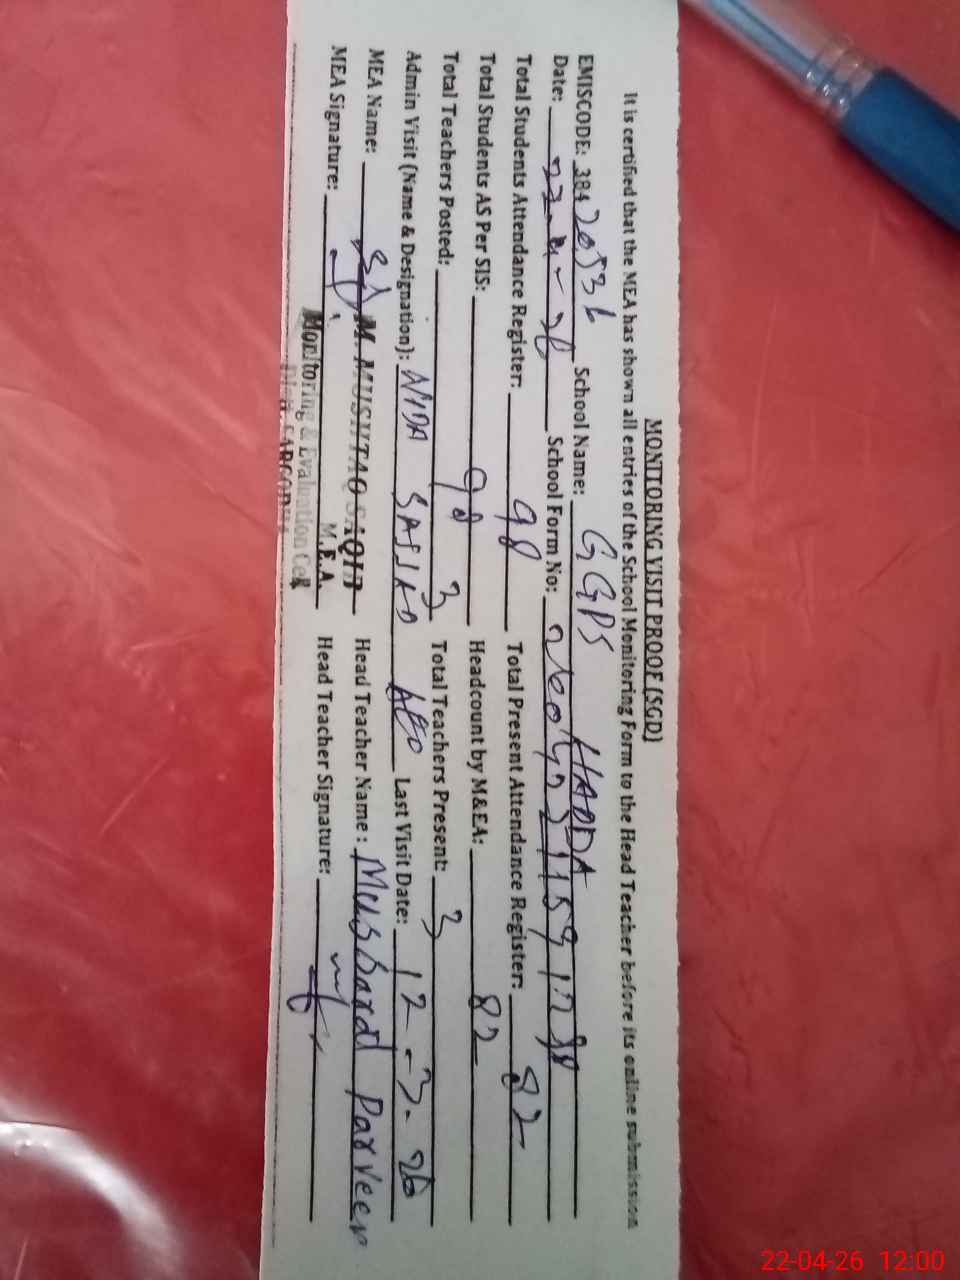 MONITORING VISIT PROOF (SGD)
It is certified that the MEA has shown all entries of the School Monitoring Form to the Head Teacher before its online submission
EMISCODE: 384 School Name: GGPS HADDA
Date: 22-4-26 School Form No:
Total Students Attendance Register: 98 Total Present Attendance Register: 82
Total Students AS Per SIS: 98 Headcount by M&EA: 82
Total Teachers Posted: 3 Total Teachers Present: 3
Admin Visit (Name & Designation): NIDA SAJJAD Last Visit Date: 12-3-26
MEA Name: M. MUSHTAQ SAQIB Head Teacher Name: Musarat Parveen
MEA Signature: M.E.A. Head Teacher Signature:
Monitoring & Evaluation Cell
Distt. SARGODHA
22-04-26 12:00